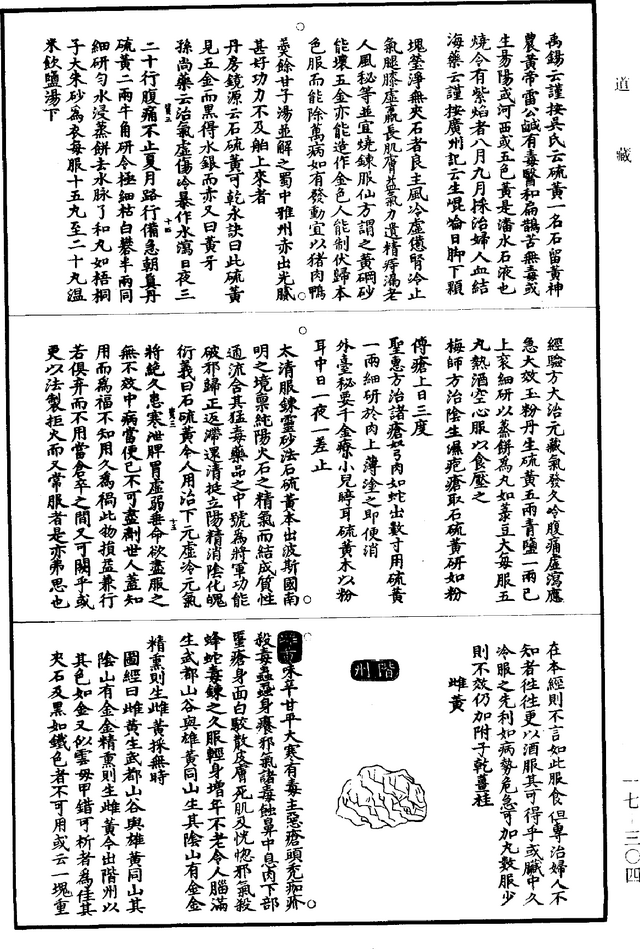 道藏
禹錫云謹按吳氏云硫黃一名石留黃神
農黃帝雷公鹹有毒醫和扁鵲苦無毒或
生易陽或河西或五色黃是潘水石液也
燒令有紫焰者八月九月採治婦人血結
海藥云謹按廣州記云生崑崙日腳下顆
塊瑩淨無夾石者良主風冷虛憊腎冷上
氣腿膝虛羸長肌膚益氣力遺精痔漏老
人風秘等並宜燒鍊服仙方謂之黃硇砂
能壞五金亦能造作金色人能制伏歸本
色服而能除萬病如有發動宜以猪肉鴨
羮餘甘子湯並解之蜀中雅州亦出光膩
甚好功力不及舶上來者
丹房鏡源云石硫黃可乾汞訣曰此硫黃
見五金而黑得水銀而赤又曰黃牙
孫尚藥云治氣虛傷冷暴作水瀉日夜三
二十行腹痛不止夏月路行備急朝真丹
硫黃二兩牛角研令極細枯白礬半兩同
細研勻水浸蒸餅去水脉了和丸如梧桐
子大朱砂為衣每服十五丸至二十丸溫
米飲鹽湯下
經驗方大治元藏氣發久冷腹痛虛瀉應
急大效玉粉丹生硫黃五兩青鹽一兩已
上衮細研以蒸餅為丸如菉豆大每服五
丸熱酒空心服以食壓之
梅師方治陰生濕疱瘡取石硫黃研如粉
傅瘡上日三度
聖惠方治諸瘡如弓肉如蛇出數寸用硫黃
一兩細研於肉上薄塗之即便消
外臺秘要千金療小兒聤耳硫黃末以粉
耳中日一夜一差止
太清服鍊靈砂法石硫黃本出波斯國南
明之境稟純陽火石之精氣而結成質性
通流含其猛毒藥品之中號為將軍功能
破邪歸正返滯還清挺立陽精消陰化魄
衍義曰石硫黃今人用治下元虛冷元氣
將絕久患寒泄脾胃虛弱垂命欲盡服之
無不效中病當便已不可盡劑世人蓋知
用而為福不知用久為禍此物損益兼行
若俱弃而不用當倉卒之間又可闕乎或
更以法製拒火而又常服者是亦弗思也
在本經則不言如此服食但專治婦人不
知者往往更以酒服其可得乎或臟中久
冷服之先利如病勢危急可加丸數服少
則不效仍加附子乾薑桂
雌黃
階州
味辛甘平大寒有毒主惡瘡頭禿痂疥
殺毒蟲蝨身癢邪氣諸毒蝕鼻中息肉下部
䘌瘡身面白駮散皮膚死肌及恍惚邪氣殺
蜂蛇毒鍊之久服輕身增年不老令人腦滿
生武都山谷與雄黃同山生其陰山有金金
精熏則生雌黃採無時
圖經曰雌黃生武都山谷與雄黃同山其
陰山有金金精熏則生雌黃今出階州以
其色如金又似雲母甲錯可析者為佳其
夾石及黑如鐵色者不可用或云一塊重
一七-三〇四